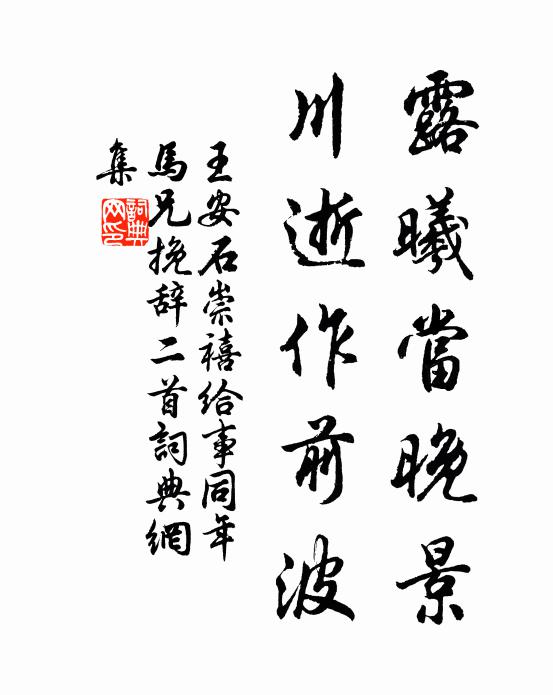 露曦當晚景
川逝作前波
王安石崇禧給事同年
馬兄挽辞二首詞典網
集
詞典網印